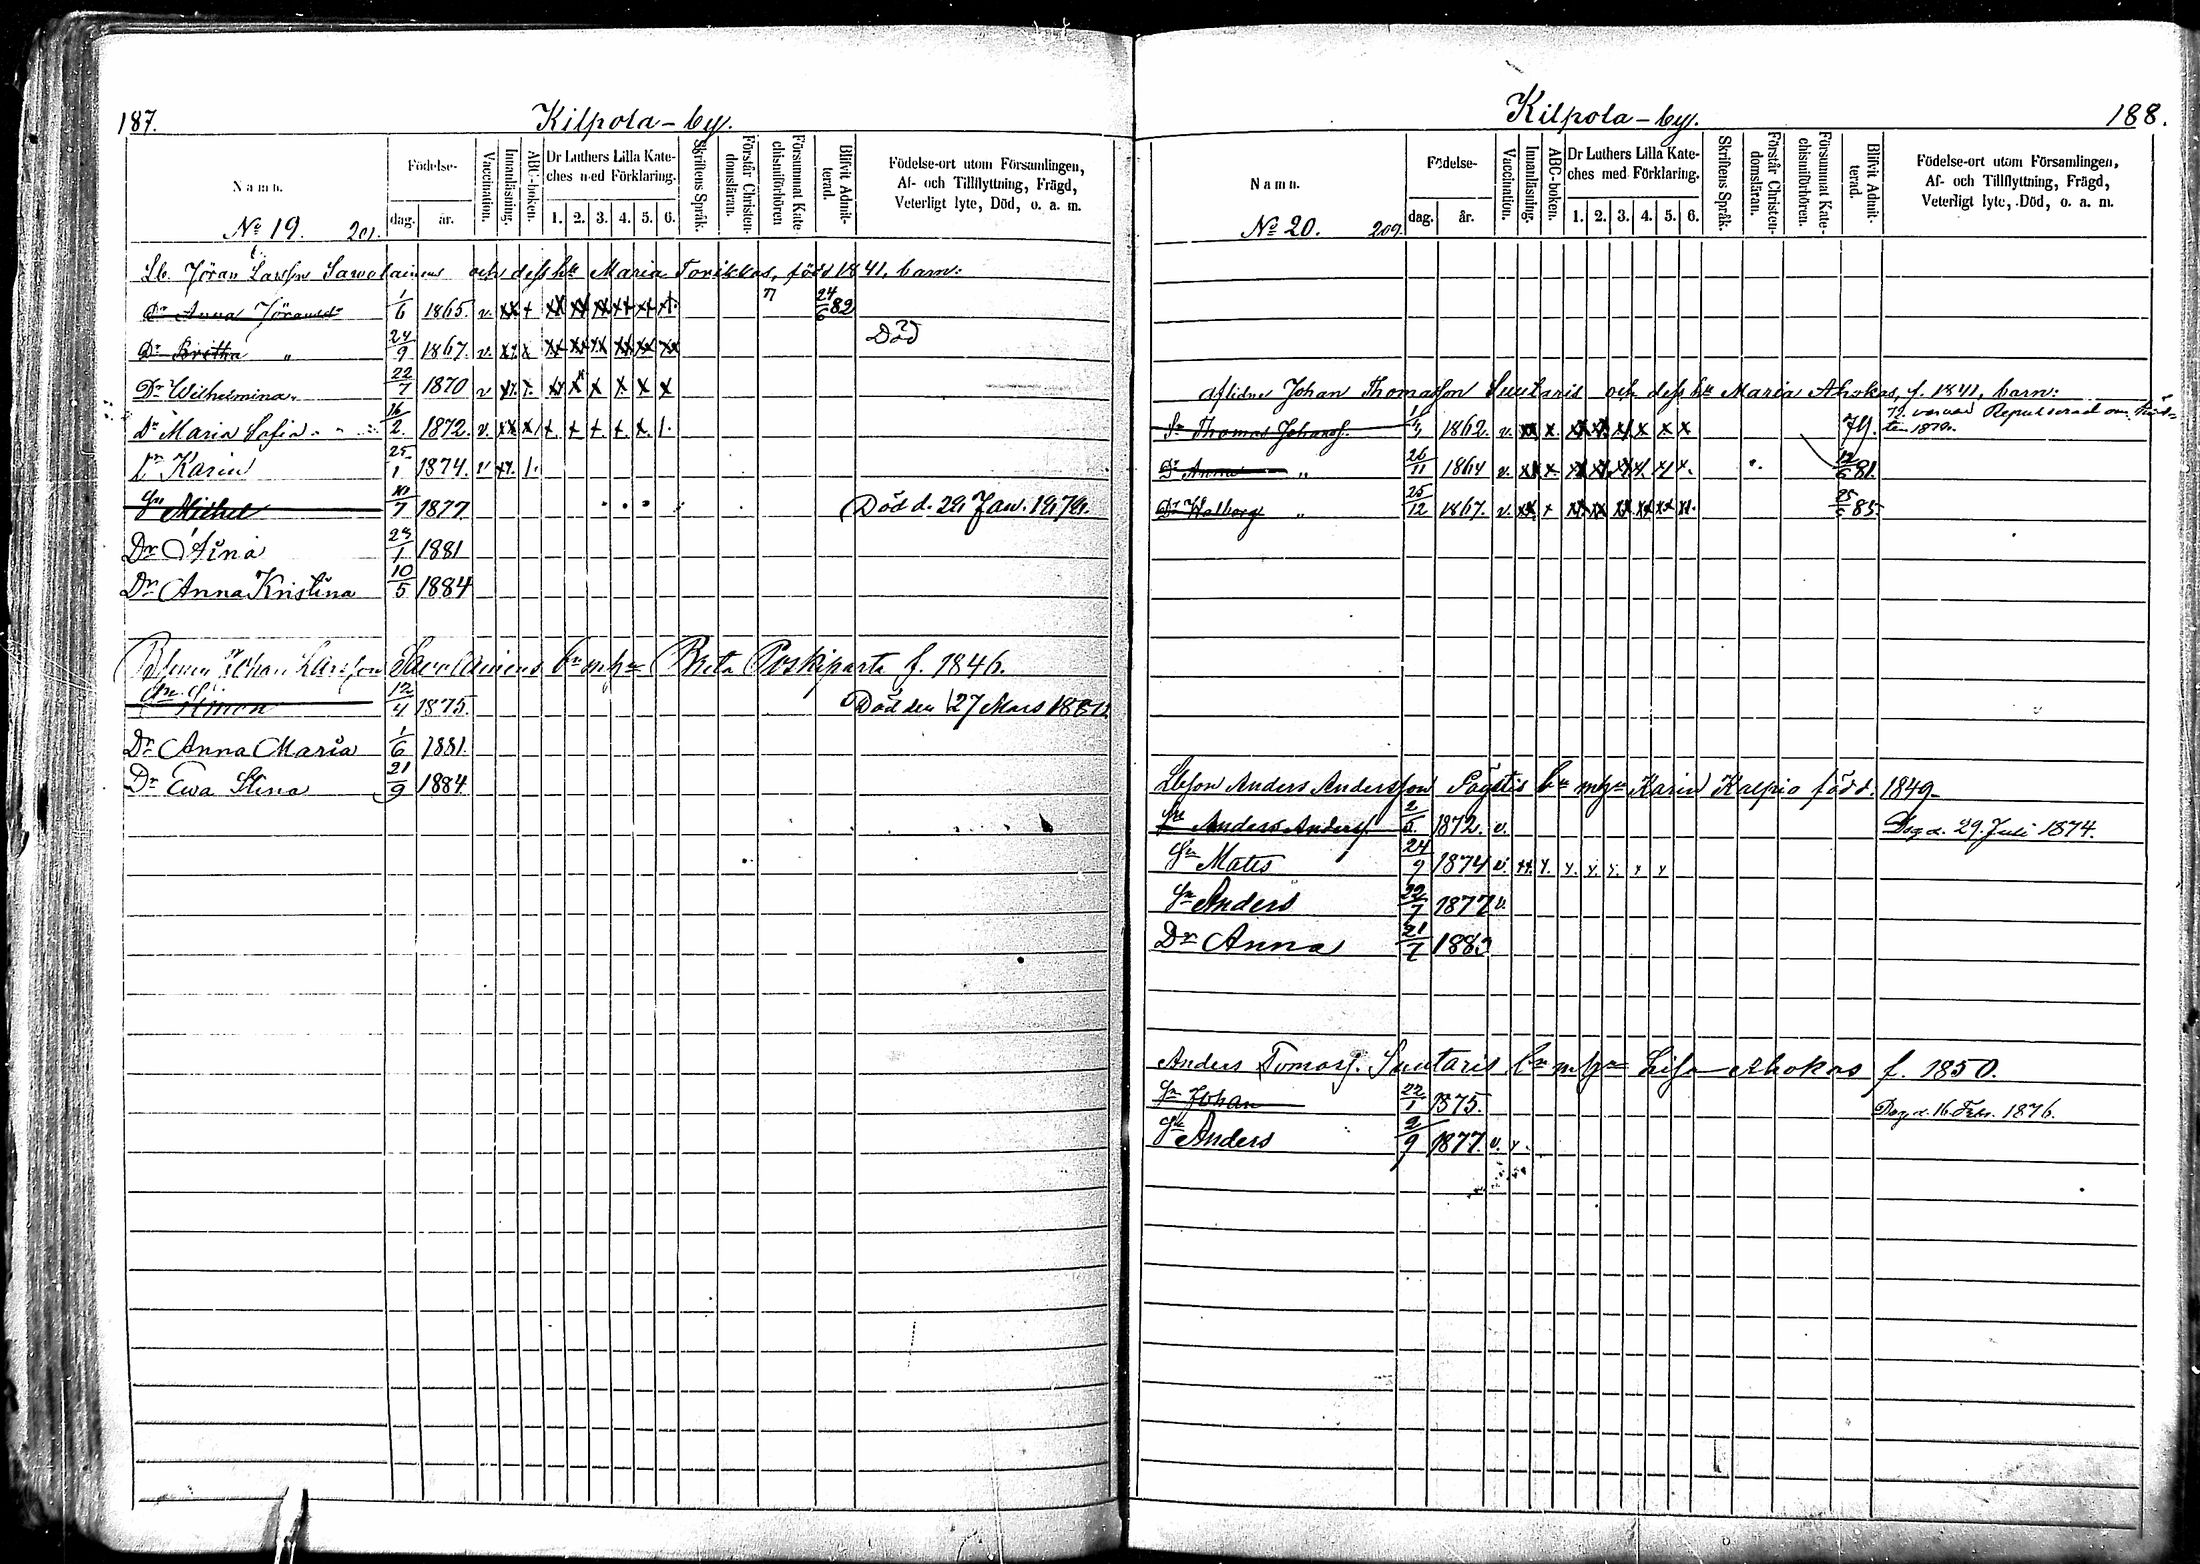 187.
Kilpola-by.
Namn.
Födelse-
dag.
år.
Vaccination.
Innanläsning.
ABC-boken.
Dr Luthers Lilla Kate-
ches med Förklaring.
1. 2. 3. 4. 5. 6.
Skriftens Språk.
Förstår Christen-
domsläran.
Försummat Kate-
chismiförhören
Blifvit Admit-
terad.
Födelse-ort utom Församlingen,
Af- och Tillflyttning, Frägd,
Veterligt lyte, Död, o. a. m.
No 19. 201.
Lb. Jöran Larsson Sawolainens och dess hu Maria Torikkas, född 1841, barn:
Dr Anna Jöransdr 1/6 1865. v. 24/6 82
Dr Britha " 24/9 1867. v. Död
Dr Wilhelmina 22/7 1870 v
Dr Maria Sofia 16/2 1872. v.
Dr Karin 25/1 1874. v
Sn Mickel 10/7 1877 Död d. 29 Jan.
Dr Stina 1881
Dr Anna Kristina 10/5 1884
Johan Larsson Savolainens bn mhu Brita Poskiparta f. 1846.
Sn Simon 12/4 1875. Död den 27 Mars
Dr Anna Maria 1/6 1881.
Dr Ewa Stina 21/9 1884
188.
Kilpola-by.
Namn.
Födelse-
dag.
år.
Vaccination.
Innanläsning.
ABC-boken.
Dr Luthers Lilla Kate-
ches med Förklaring.
1. 2. 3. 4. 5. 6.
Skriftens Språk.
Förstår Christen-
domsläran.
Försummat Kate-
chismiförhören.
Blifvit Admit-
terad.
Födelse-ort utom Församlingen,
Af- och Tillflyttning, Frägd,
Veterligt lyte, Död, o. a. m.
No 20. 209.
Aflidne Johan Thomasson Suutaris och dess hu Maria Ahokas, f. 1841, barn:
Sn Thomas Johanss. 1862. v. 79.
Dr Anna " 26/11 1864 v. 12/6 81.
Dr Walborg " 25/12 1867. v. 85.
Lbson Anders Andersson bn mhu Karin Kalpio född. 1849
Sn Anders Anderss. 2/5. 1872. v. Dog d. 29. Juli 1874.
Sn Mats 24/9 1874 v.
Sn Anders 22/7 1877 v.
Dr Anna 21/7
Anders Tomass. Suutaris bn mhu Lisa Ahokas f. 1850.
Sn Johan 22/1 1875. Dog d. 16. Febr. 1876.
Sn Anders 2/9 1877. v.